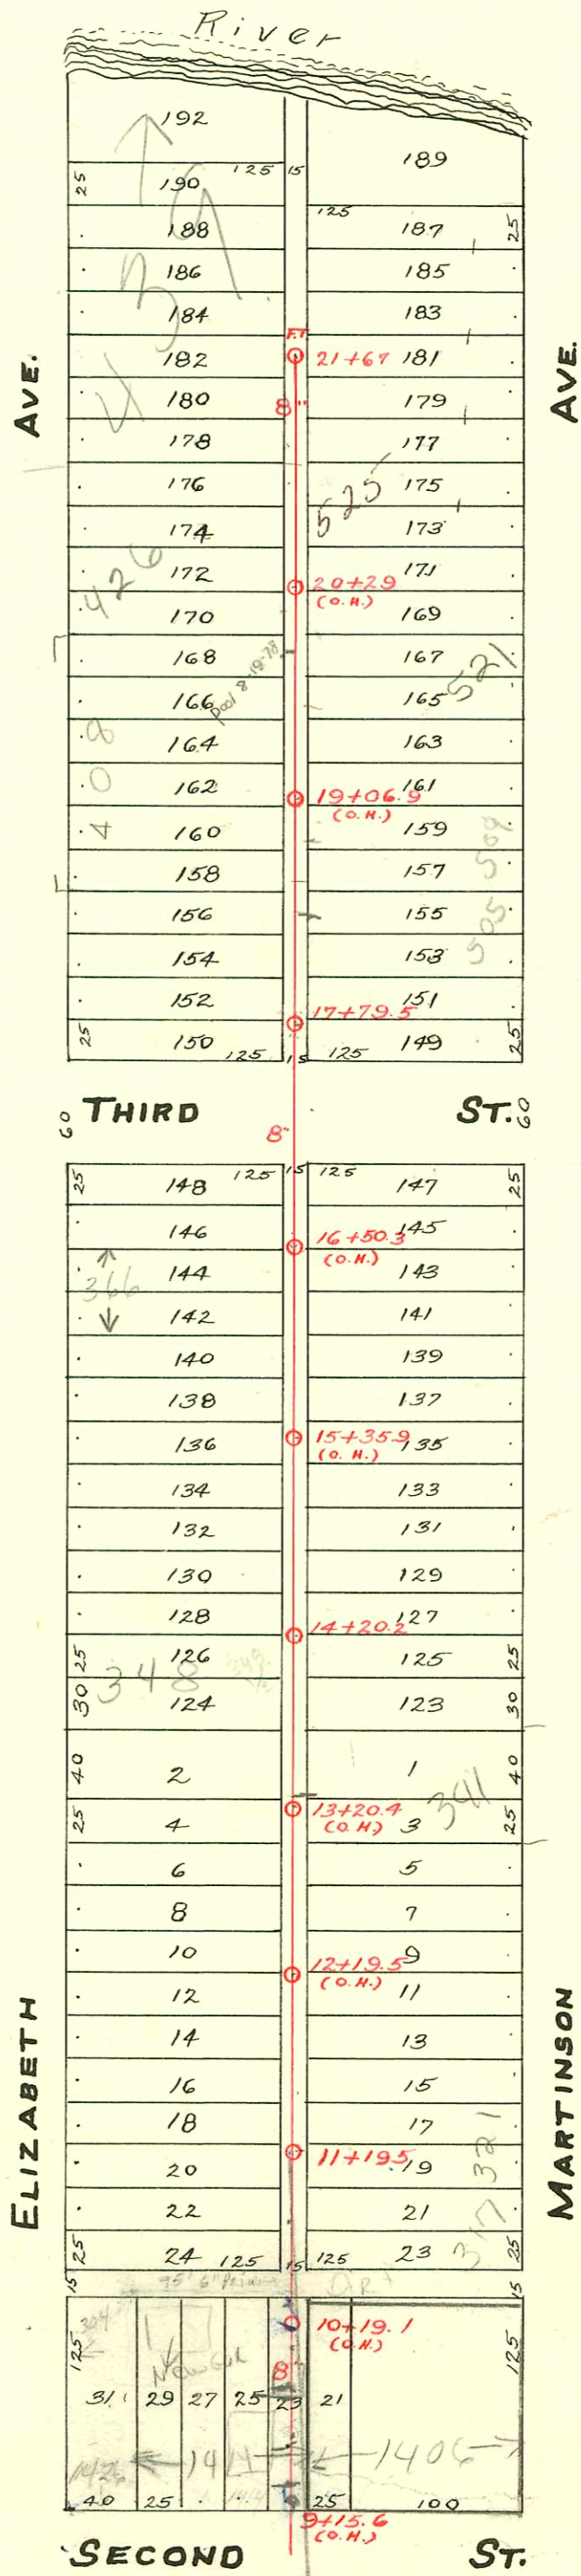 River
192
189
125 15
25 190
125
188 187 25
186 185
184 183
439
F.T
182 21+67 181
AVE. AVE.
180 8" 179
178 177
176 175
525
174 173
172 171
426
20+29
(O.H.)
170 169
168 167
521
Pool 8-19-78
166 165
164 163
408
162 161
19+06.9
(O.H.)
160 159
509
158 157
156 155
505
154 153
152 151
17+79.5
25 150 125 15 125 149 25
60 THIRD ST. 60
8"
25 148 125 15 125 147 25
146 145
16+50.3
(O.H.)
144 143
366
142 141
140 139
138 137
136 135
15+35.9
(O.H.)
134 133
132 131
130 129
128 127
14+20.2
25 126 125 25
348
30 124 123 30
40 2 1 40
341
13+20.4
(O.H.)
25 4 3 25
6 5
8 7
10 9
12+19.5
(O.H.)
12 11
14 13
16 15
18 17
321
11+19.5
20 19
22 21
317
25 24 125 15 125 23 25
ELIZABETH MARTINSON
15 15
95' 6"
304
10+19.1
(O.H.)
125 125
8"
31 29 27 25 23 21
1426 1414 1406
40 25 25 100
9+15.6
(O.H.)
SECOND ST.